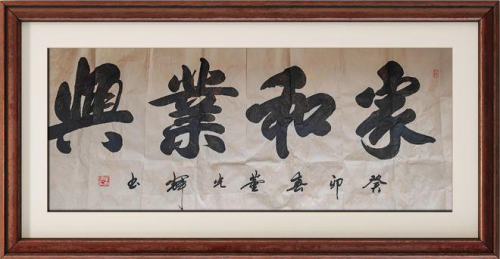 家和業興
癸卯春 光輝书